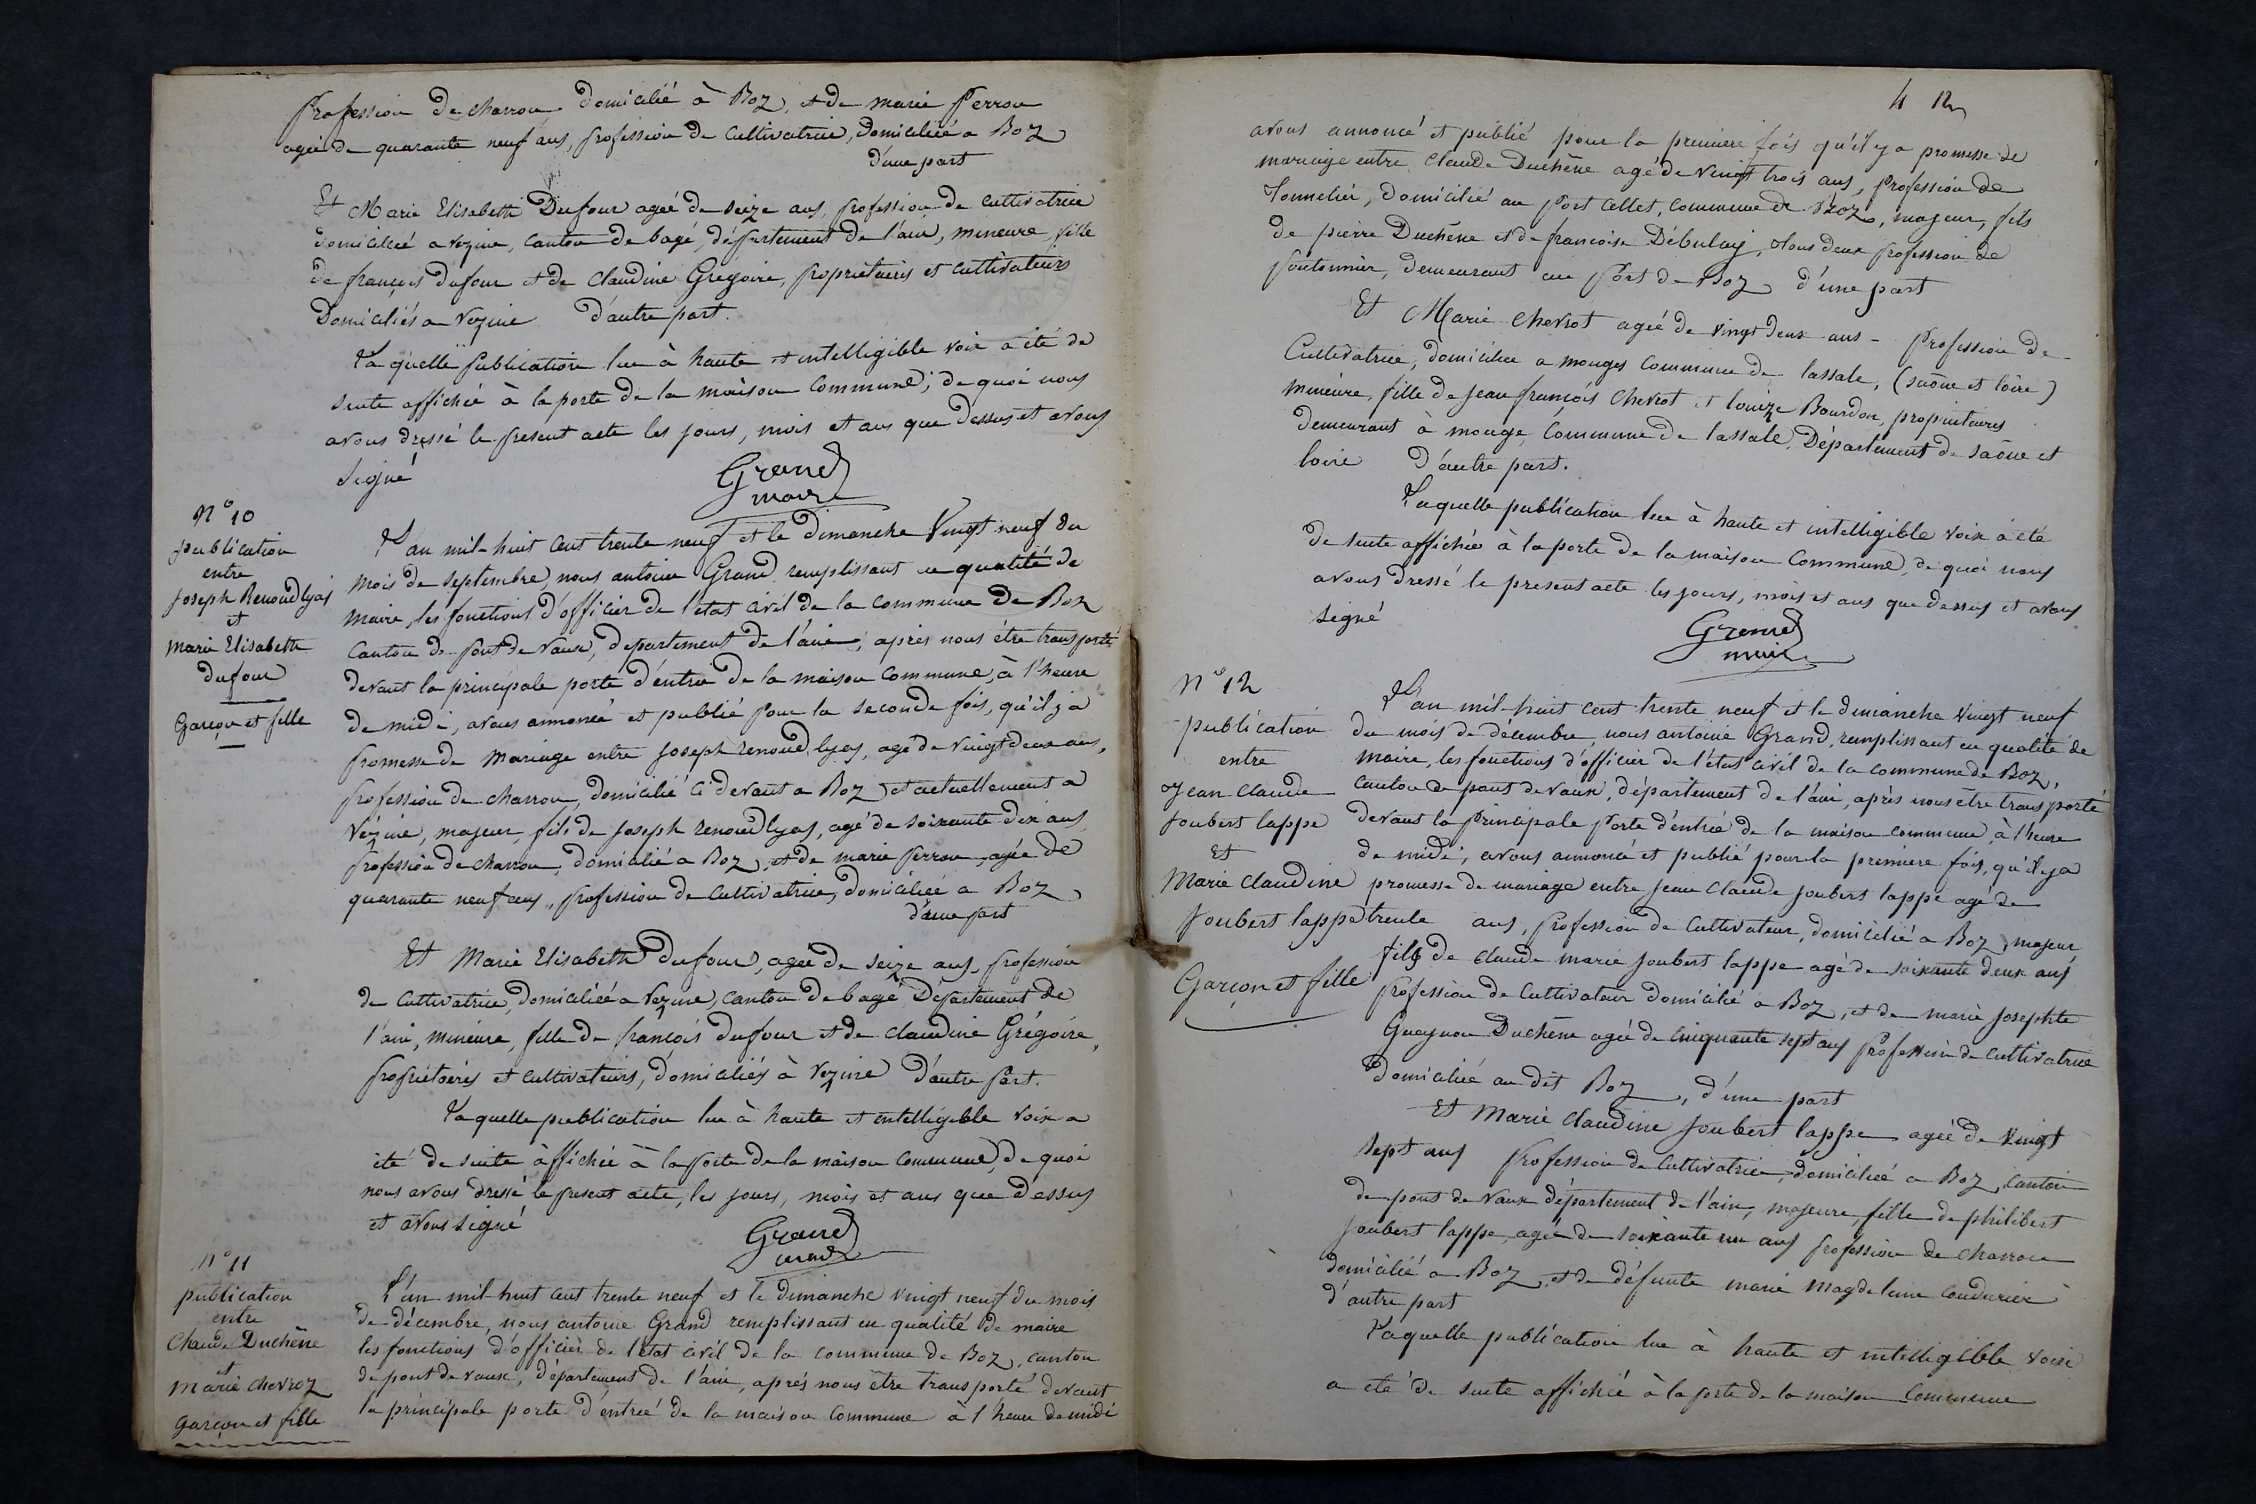 profession de charron, domicilié à Boz, et de marie Perron
agée de quarante neuf ans, profession de Cultivatrice, domiciliée a Boz
d'une part
Et Marie Elisabeth Dufour agée de seize ans, profession de cultivatrice
domiciliée a vezine, canton de bagé, département de l'ain, mineure, fille
de françois dufour et de Claudine Gregoire, proprietaires et cultivateurs
Domiciliés a Vezine d'autre part.
Laquelle publication lue à haute et intelligible voix a été de
suite affichée à la porte de la maison Commune; de quoi nous
avons dressé le present acte les jours, mois et ans que dessus et avons
signé
Grand
maire
N° 10
publication
entre
Joseph Renoud lyas
et
Marie Elisabeth
dufour
Garçon et fille
L'an mil-huit cent trente neuf et le dimanche Vingt neuf du
mois de septembre, nous antoine Grand, remplissant en qualité de
maire, les fonctions d'officier de l'état civil de la commune De Boz
canton de pont de Vaux, departement de l'ain; après nous être transporté
devant la principale porte d'entrée de la maison Commune, à l'heure
de midi, avons annoncé et publié pour la seconde fois, qu'il y a
promesse de Mariage entre Joseph renoud lyas, agé de vingt deux ans,
profession de charron, domicilié Ci devant a Boz et actuellement a
Vezine, majeur, fils de Joseph renoud lyas, agé de soixante dix ans
profession de charron, domicilié a Boz, et de marie perron, agée de
quarante neuf ans, profession de Cultivatrice, domiciliée a Boz
d'une part
Et Marie Elisabeth dufour, agée de seize ans, profession
de Cultivatrice, domiciliée a Vezine, canton de bagé Département de
l'ain, mineure, fille de françois dufour et de Claudine Grégoire,
proprietaires et cultivateurs, domiciliés à Vezine d'autre part.
Laquelle publication lue à haute et intelligible voix a
été de suite affichée à la porte de la maison commune, de quoi
nous avons dressé le present acte, les jours, mois et ans que dessus
et avons signé
Grand
maire
N° 11
publication
entre
Claude Duchêne
et
Marie chevroz
garçon et fille
L'an mil-huit cent trente neuf et le dimanche vingt neuf du mois
de décembre, nous antoine Grand remplissant en qualité de maire
les fonctions d'officier de l'état civil de la commune de Boz, canton
de pont de vaux, département de l'ain, après nous être transporté devant
la principale porte d'entrée de la maison commune à l'heure de midi
4
avons annoncé et publié pour la premiere fois qu'il y a promesse de
mariage entre Claude Duchêne agé de vingt trois ans, profession de
Tonnelier, domicilié au port Cellet, commune de Boz, majeur, fils
de pierre Duchêne et de françoise Débulay, tous deux profession de
pontonnier, demeurant au port de Boz d'une part
Et Marie Chevrot agée de vingt deux ans - profession de
Cultivatrice, domiciliée a mouges commune de lassale, (saône et loire)
mineure, fille de Jean françois Chevrot et louize Bourdon, proprietaires
demeurant à mouge Commune de lassale, Département de saône et
loire d'autre part.
Laquelle publication lue à haute et intelligible voix a été
de suite affichée à la porte de la maison Commune, de quoi nous
avons dressé le present acte les jours, mois et ans que dessus et avons
signé
Grand
maire
N° 12
publication
entre
Jean Claude
Joubert lappe
Et
Marie Claudine
Joubert lappe
Garçon et fille
L'an mil-huit cent trente neuf et le dimanche vingt neuf
du mois de décembre, nous antoine Grand, remplissant en qualité de
maire, les fonctions d'officier de l'état civil de la commune de Boz,
canton de pont de vaux, département de l'ain, après nous être transporté
devant la principale porte d'entrée de la maison commune, à l'heure
de midi, avons annoncé et publié pour la premiere fois, qu'il y a
promesse de mariage entre Jean Claude Joubert lappe agé de
trente ans, profession de Cultivateur, domicilié a Boz, majeur
fils de claude marie Joubert lappe agé de soixante deux ans
profession de Cultivateur domicilié a Boz, et de marie Josephte
Gueynon Duchêne agée de cinquante sept ans profession de cultivatrice
Domiciliée au dit Boz, d'une part
Et Marie Claudine Joubert lappe agée de vingt
sept ans profession de Cultivatrice, domiciliée a Boz, canton
de pont de vaux département de l'ain, majeure, fille de philibert
Joubert lappe, agé de soixante un ans profession de charron
domicilié a Boz, et de défunte marie Magdelaine Coudurier
d'autre part
Laquelle publication lue à haute et intelligible voix
a été de suite affichée à la porte de la maison Commune